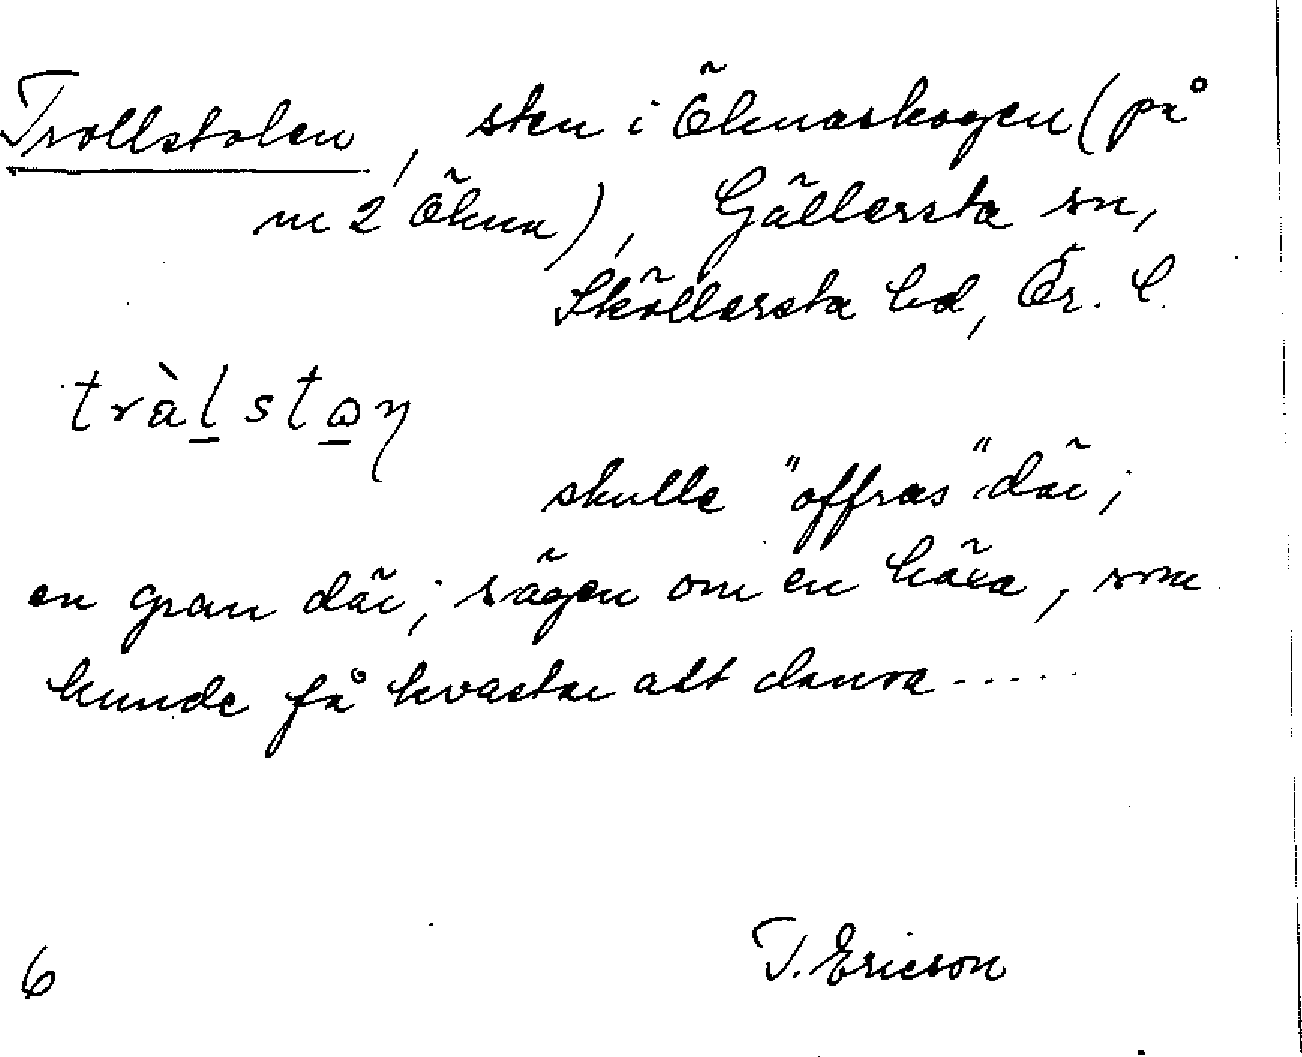 Trollstolen, sten i Öknaskogen (på
m 2 Ökna), Gällersta sn,
Sköllersta hd, Ör. l.
tràl̲stɷ̲ŋ
skulle "offras" där;
en gran där; sägen om en häxa, som
kunde få kvastar att dansa.....
T. Ericson
6